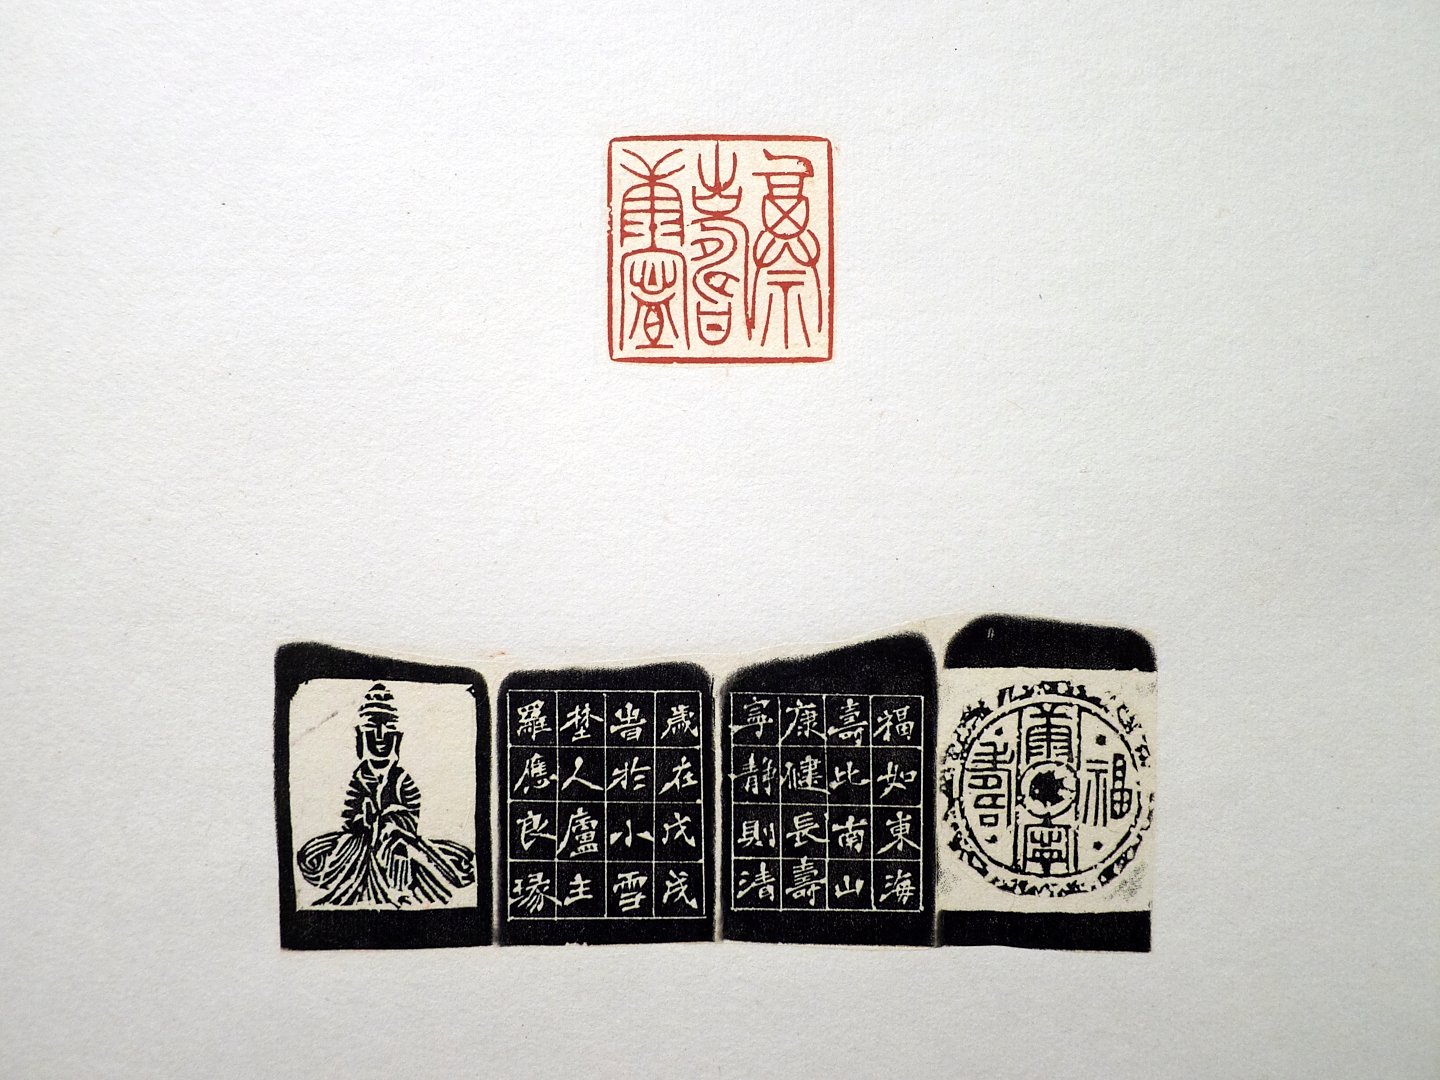 福壽康寧
福壽康寧
福如東海
壽比南山
康健長壽
寧靜則清
歲在戊戌
旹於小雪
埜人廬主
羅應良瑑